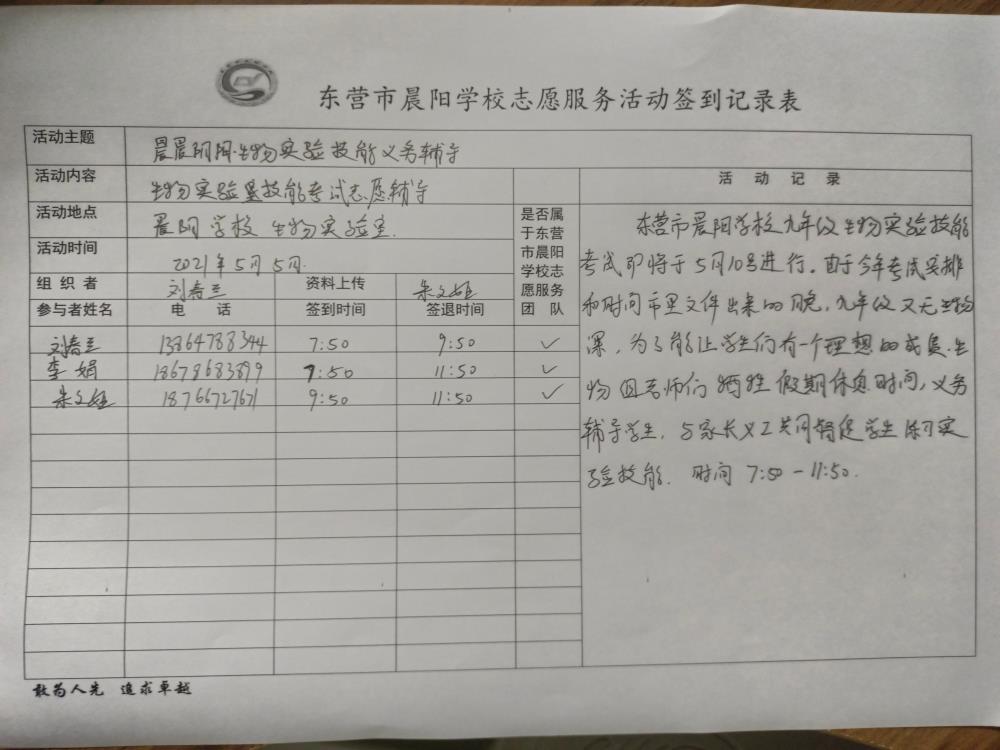 东营市晨阳学校志愿服务活动签到记录表
活动主题 晨晨阴阳生物实验技能义务辅导
活动内容 生物实验室技能考试志愿辅导
活动地点 晨阳学校 生物实验室.
活动时间 2021年5月5日.
组织者 刘春兰 资料上传
参与者姓名 电话 签到时间 签退时间
是否属
于东营
市晨阳
学校志
愿服务
团队
刘春兰 13864788344 7:50 9:50 ✓
李娟 18678683899 7:50 11:50 ✓
18766727671 9:50 11:50 ✓
活动记录
东营市晨阳学校九年级生物实验技能
考试即将于5月10号进行。由于今年考试安排
和时间市里文件出来的晚,九年级又无生物
课,为了能让学生们有一个理想的成负.生
物组老师们牺牲假期休息时间,义务
辅导学生,与家长义工共同督促学生练习实
验技能. 时间 7:50-11:50.
敢为人先 追求卓越